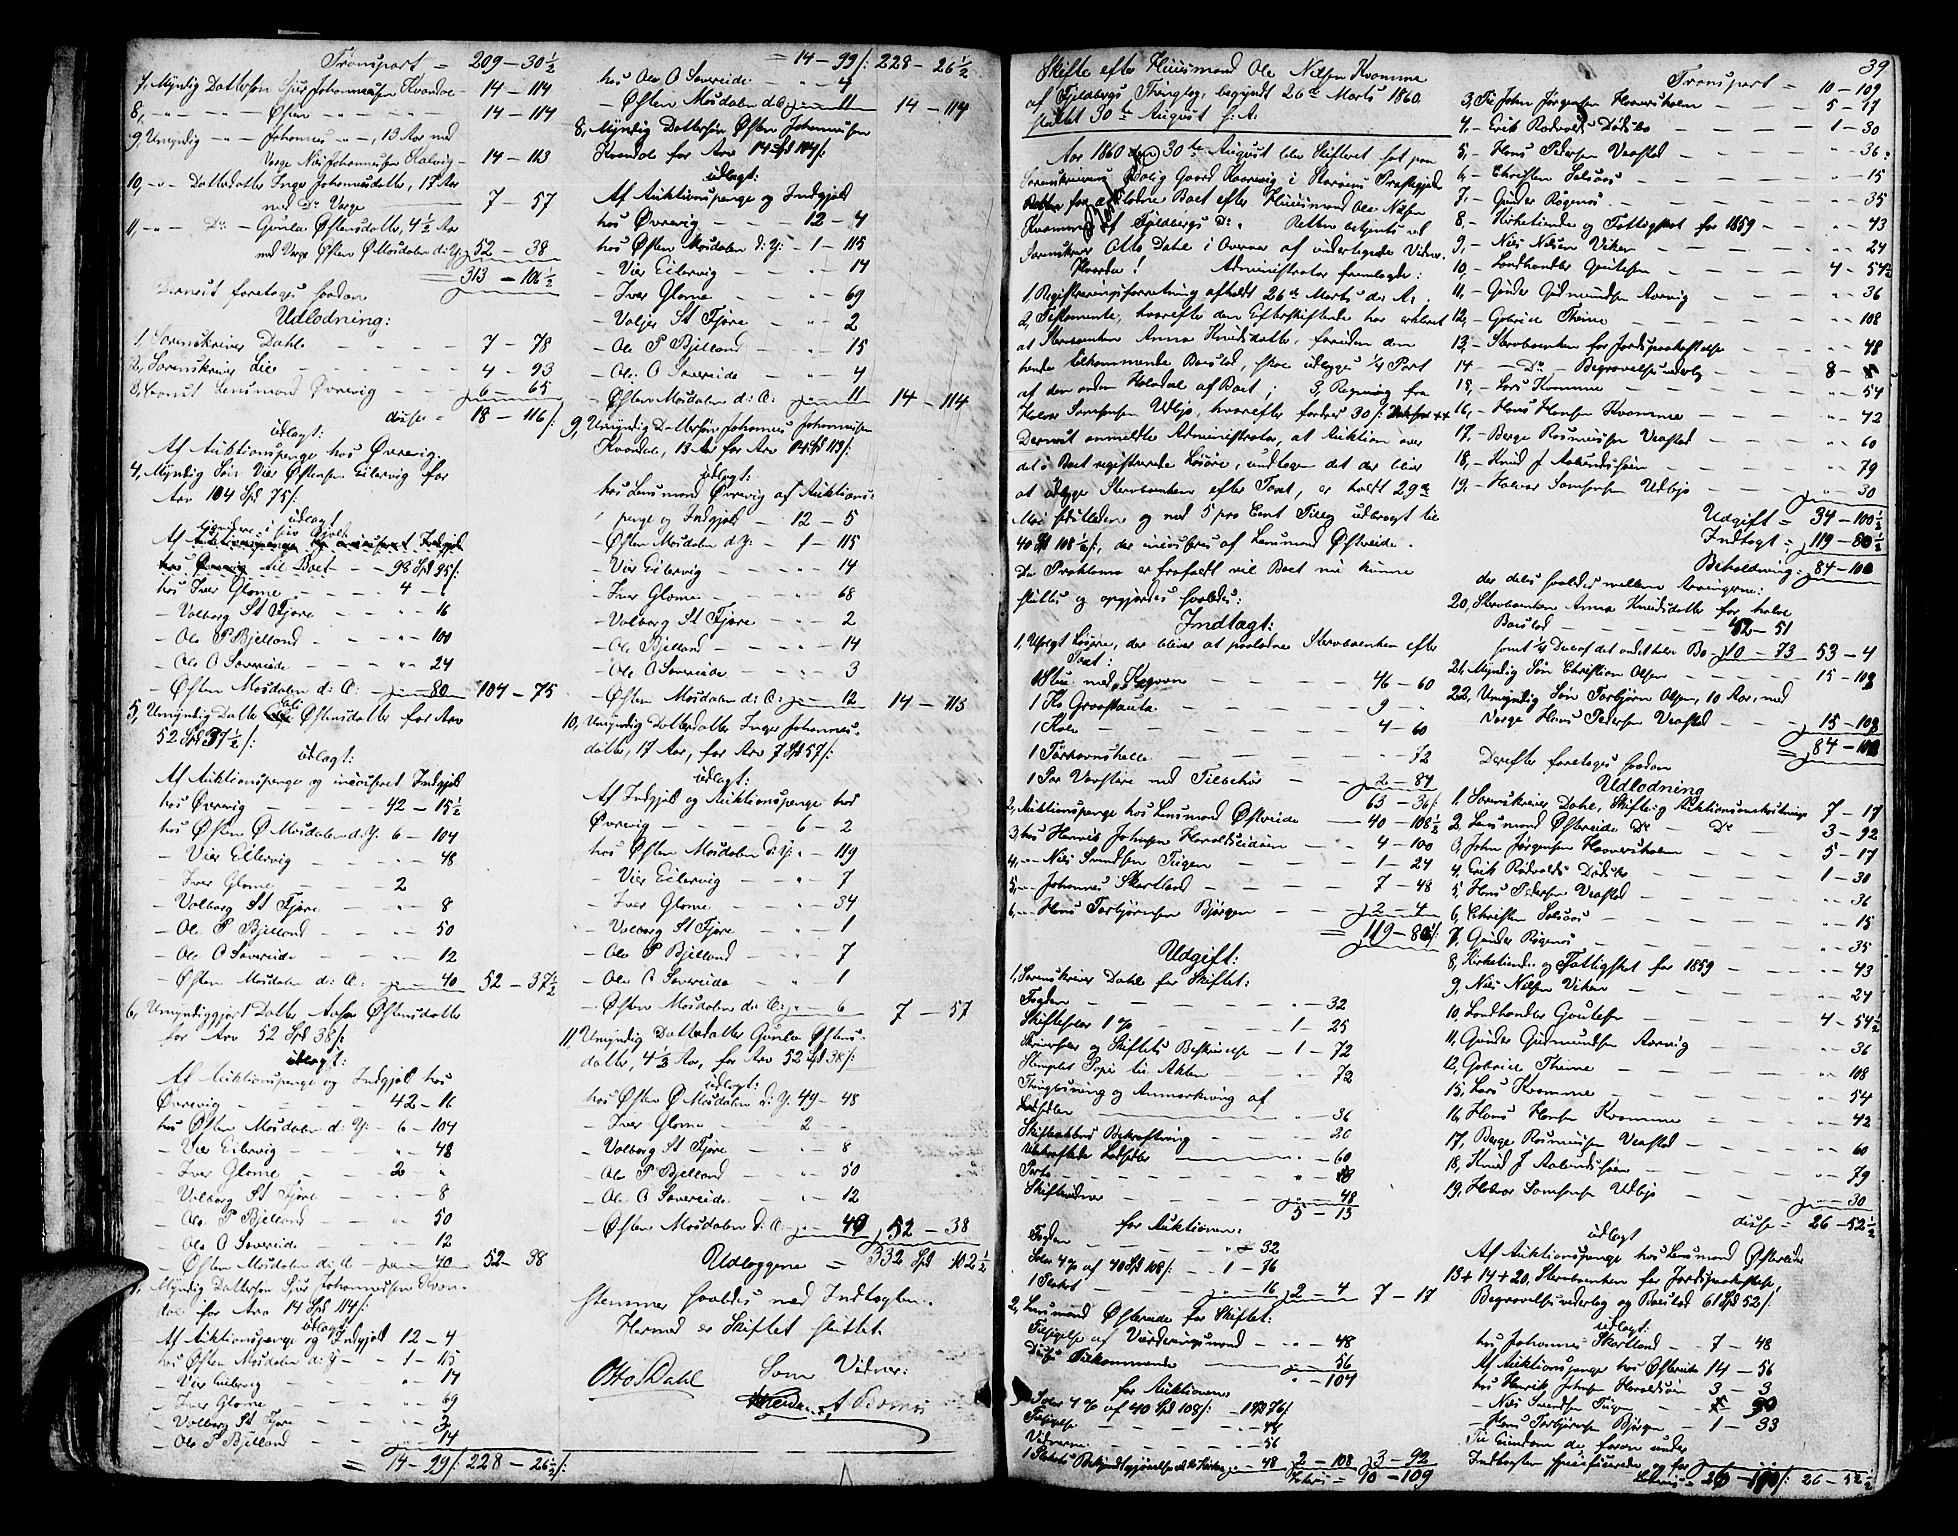 Transport = 209 - 30½
7, Myndig Dattersøn Sjur Johannessen Kvandal - 14 - 114
8, -"- -"- Østen -"- -"- 14 - 114
9, Umyndig -"- Johannes -"-, 13 Aar med
Verge Nils Johannessen Halvig - 14 - 113
10, -"- Datterdatter Inger Johannesdatter, 17 Aar
med Do Verge 7 - 57
11, -"- Do - Gunla Østensdatter, 4½ Aar
med Verge Østen Ø Mosdalen d: Y: 52 - 38
= 313 - 106½
Dernest foretoges saadan
Udlodning:
1, Sorenskriver Dahl - - - 7 - 78
2, Sorenskriver Lie - - - 4 - 93
3, Lensmand Øvrevig - - 6 - 65
disse = 18 - 116 /:
udlagt:
Af Auktionspenge hos Øvrevig.
4, Myndig Søn Vier Østensen Eilervig for
Arv 104 Spd 75 /:
udlagt
til Boet - - 98 Spd 95 /:
hos Iver Glome - - - 4 -
- Valborg St Fjøre - - " - 16
- Ole P Bjelland - - " - 100
- Ole O Sævereide - - " - 24
- Østen Mosdalen d: Æ: - " - 80 104 - 75
5, Umyndig Datter Østensdatter for Arv
52 Spd 37½ /:
udlagt:
Af Auktionspenge og inviseret Indgjæld
hos Øvrevig - - - 42 - 15½
hos Østen Ø Mosdalen d: Y: 6 - 104
- Vier Eilervig - - " - 48
- Iver Glome - - 2
- Valborg St Fjøre - - " - 8
- Ole P Bjelland - - " - 50
- Ole O Sævereide - - " - 12
- Østen Mosdalen d: Æ: - " - 40 52 - 37½
6, Umyndiggjort Datter Østensdatter
for Arv 52 Spd 38 /:
udlagt:
Af Auktionspenge og Indgjæld hos
Øvrevig - - - 42 - 16
hos Østen Mosdalen d: Y: - 6 - 104
- Vier Eilervig - - " - 48
- Iver Glome - - 2 "
- Valborg St Fjøre - - " - 8
- Ole P Bjelland - - " - 50
- Ole O Sævereide - - " - 12
- Østen Mosdalen d: Æ - " - 40 52 - 38
7, Myndig Dattersøn Sjur Johannessen Kvan-
dal for Arv 14 Spd 114 /:
udlagt:
Af Auktionspenge og Indgjæld 12 - 4
hos Østen Mosdalen d: Y - - 1 - 115
- Vier Eilervig - - " - 14
- Iver Glome - - " 69
- Valborg St Fjøre - - " 2
- Ole P Bjelland - - " 14
= 14 - 99 /: 228 - 26½ /:
= 14 - 99 /: 228 - 26½
hos Ole O Sævereide - - " - 4
- Østen Mosdalen d: Æ - " - 11 14 - 114
8, Myndig Dattersøn Østen Johannessen
Kvandal for Arv 14 Spd 114 /:
udlagt:
Af Auktionspenge og Indgjæld
hos Øvrevig - - 12 - 4
hos Østen Mosdalen d: Y: - 1 - 115
- Vier Eilervig - - " - 14
- Iver Glome - - " - 69
- Valborg St Fjøre - - " - 2
- Ole P Bjelland - - " - 15
- Ole O Sævereide - - " - 4
- Østen Mosdalen d: Æ: - " - 11 14 - 114
9, Umyndig Dattersøn Johannes Johannessen
Kvandal, 13 Aar for Arv 14 Spd 113 /:
udlagt:
hos Lensmand Øvrevig af Auktions-
penge og Indgjæld - 12 - 5
- Østen Mosdalen d: Y: - 1 - 115
- Vier Eilervig - - " - 14
- Iver Glome - - " - 68
- Valborg St Fjøre - - " - 2
- Ole P Bjelland - - " - 14
- Ole O Sævereide - - " - 3
- Østen Mosdalen d: Æ: - " - 12 14 - 113
10, Umyndig Datterdatter Inger Johannes-
datter, 17 Aar, for Arv 7 Spd 57 /:
udlagt:
Af Indgjæld og Auktionspenge hos
Øvrevig - - - 6 - 2
hos Østen Mosdalen d: Y: " - 119
- Vier Eilervig - - " - 7
- Iver Glome - - " - 34
- Valborg St Fjøre - - " - 1
- Ole P Bjelland - - " - 7
- Ole O Sævereide - - " - 1
- Østen Mosdalen d: Æ: - " - 6 7 - 57
11, Umyndig Datterdatter Gunla Østens-
datter, 4½ Aar, for Arv 52 Spd 38 /:
udlagt:
hos Østen Ø Mosdalen d: Y: 49 - 48
- Iver Glome - - 2 -
- Valborg St Fjøre - - " - 8
- Ole P Bjelland - - " 50
- Ole O Sævereide - - " - 12
- Østen Mosdalen d: Æ - " - 40 52 - 38
Udlæggene = 332 Spd 102½
stemmer saaledes med Indtægten.
Hermed er Skiftet sluttet.
Otto Dahl Som Vidner:
39
Skifte efter Huusmand Ole Nilsen Kvamme
af Fjeldbergs Thinglag, begyndt 26de Marts 1860,
sluttet 30te August s: A:
Aar 1860 den 30te August blev Skifteret sat paa
Sorenskriverens Bolig Gaard Kaarevig i Storøens Præstegjæld
for at slutte Boet efter Huusmand Ole Nilsen
Kvamme af Fjeldbergs Do. Retten betjentes ved
Sorenskriver Otto Dahl i Overvær af undertegnede Vidner.
Administrator fremlagde:
1, Registreringsforretning afholdt 26de Marts d: A:
2, Testamente, hvorefter den Efterskiftede har erklæret
at Stervboenken Anna Knudsdatter, foruden den
hende tilkommende Boeslod, skal udlægges ¼ Part
af den anden Halvdel af Boet; 3, Regning fra
Halvor Samsonsen Utbjo, hvorefter fordres 30 /:
Dernest anmeldte Administrator, at Auktion over
det i Boet registrerede Løsøre, undtagen det der bliver
at udlægge Stervboenken efter Taxt, er holdt 29de
Mai sidstleden og med 5 pro Cent Tillæg udbragt til
40 Spd 108½ /:, der incasseres af Lensmand Østreide.
Da Proklama er frafaldt vil Boet nu kunne
sluttes og opgjøres saaledes:
Indtægt:
1, Usolgt Løsøre, der bliver at paalodne Stervboenken efter
Taxt:
1 Stue med Kover - - - 46 - 60
1 Ko - - - - 9 - "
1 Kalv - - - - - 4 - 60
1 - - - - " - 72
1 Par Vævstole med Tilbehør - - 2 - 84
63 - 36 /:
2, Auktionspenge hos Lensmand Østreide - - 40 - 108½
3, hos Henrik Johnsen Haraldseidsvaag - - 4 - 100
4, -"- Nils Svendsen Tugen - - - 1 - 24
5, -"- Johannes Skartland - - - 7 - 48
6, -"- Hans Torbjørnsen Bjørgen - - 2 - 4
= 119 - 80½ /:
Udgift:
1, Sorenskriver Dahl for Skiftet:
Fogden - - - - " - 32
Skifteafgift 1 % - - - 1 - 25
Skriversalær og Skiftets Beskrivelse - 1 - 72
Stemplet Papir til Akten - - " 72
Thinglæsning og Anmærkning af
" - 36
Skifteakters Bekræftning - - - 20
Udskrevne Lodsedler - - - 60
Porto - - - - " - 18
Skiftevidner - - - 48
5 - 13
for Auktionen:
Fogden - - - " - 32
Salær 4 % af 40 Spd 108 /: - - 1 - 76
1 Plakat - - - " 16 2 - 4 7 - 17
2, Lensmand Østreide for Skiftet:
Tilsigelse af Vurderingsmænd - - " - 48
Disse Tilkommende - - " - 56
" - 104
for Auktionen
Salær 4 % af 40 Spd 108 /: - 1 Spd 76 /:
Tilsigelse - - - " - 48
Vidnerne - - - " - 56
1 Plakats Bekjendtgjørelse - " - 48 2 - 108 3 - 92
Lateris = 10 - 109
Transport = 10 - 109
3, Til John Jørgensen Haavesholm - - 5 - 17
4, - Erik Rødvolds Dødsbo - - - 1 - 30
5, - Hans Pedersen Veastad - - - " 36
6, - Christen Selsaas - - - " 15
7, - Gunder Røgenes - - - " 35
8, - Kirketiende og Fattigskat for 1859 - - - " - 43
9, - Nils Nilsen Viken - - - " - 24
10, - Landhandler Gjøtesen - - - 4 - 54½
11, - Gunder Gudmundsen Aarvig - - - " 36
12, - Gabriel Theime - - - - " 108
13, - Stervboenken for Jordspaakastelse - - - " 48
14 - Do - Begravelsesudlæg - - 8 -
15, - Lars Kvamme - - - " 54
16, - Hans Hansen Kvamme - - - " 42
17, - Berge Rasmussen Veastad - - - " 60
18, - Knud J Aalundshøien - - - " 79
19, - Halvor Samsonsen Udbjo - - " 30
Udgift = 34 - 100½
Indtægt = 119 - 80½
Beholdning: 84 - 100
der deles saaledes mellem Arvingerne:
20, Stervboenken Anna Knudsdatter for halve
Boeslod - - - - 42 - 51
samt ¼ Deel af det andet halve Bo - 10 - 73 53 - 4
21, Myndig Søn Christian Olsen - - 15 - 108
22, Umyndig Søn Torbjørn Olsen, 10 Aar, med
Verge Hans Pedersen Veastad - - 15 - 108
= 84 - 100
Derefter foretoges saadan
Udlodning
1, Sorenskriver Dahl, Skifte og Auktionsomkostninger 7 - 17
2, Lensmand Østreide Do - - Do 3 - 92
3, John Jørgensen Haavesholm - - 5 - 17
4, Erik Rødvolds Dødsbo - - - 1 - 30
5, Hans Pedersen Veastad - - - " 36
6, Christen Selsaas - - - " - 15
7, Gunder Røgenes - - - " - 35
8, Kirketiende og Fattigskat for 1859 - - - " - 43
9, Nils Nilsen Viken - - - " - 24
10, Landhandler Gjøtesen - - - 4 - 54½
11, Gunder Gudmundsen Aarvig - - - " - 36
12, Gabriel Theime - - - " - 108
15, Lars Kvamme - - - " - 54
16, Hans Hansen Kvamme - - - " - 42
17, Berge Rasmussen Veastad - - - " 60
18, Knud J Aalundshøien - - - " 79
19, Halvor Samsonsen Udbjo - - " 30
disse = 26 - 52½
udlagt
Af Auktionspenge hos Lensmand Østreide
13 + 14 + 20, Stervboenken for Jordspaakastelse,
Begravelsesudlæg og Boeslod 61 Spd 52 /:
udlagt:
hos Johannes Skartland - 7 - 48
Af Auktionspenge hos Østreide 14 - 56
hos Henrik Johnsen 3 - 3
- Nils Svendsen Tugen - 90
- Hans Torbjørnsen Bjørgen - 1 - 33
Til Eiendom de foran under
Indtægten specificerede og for
Lateris = 26 - 52½